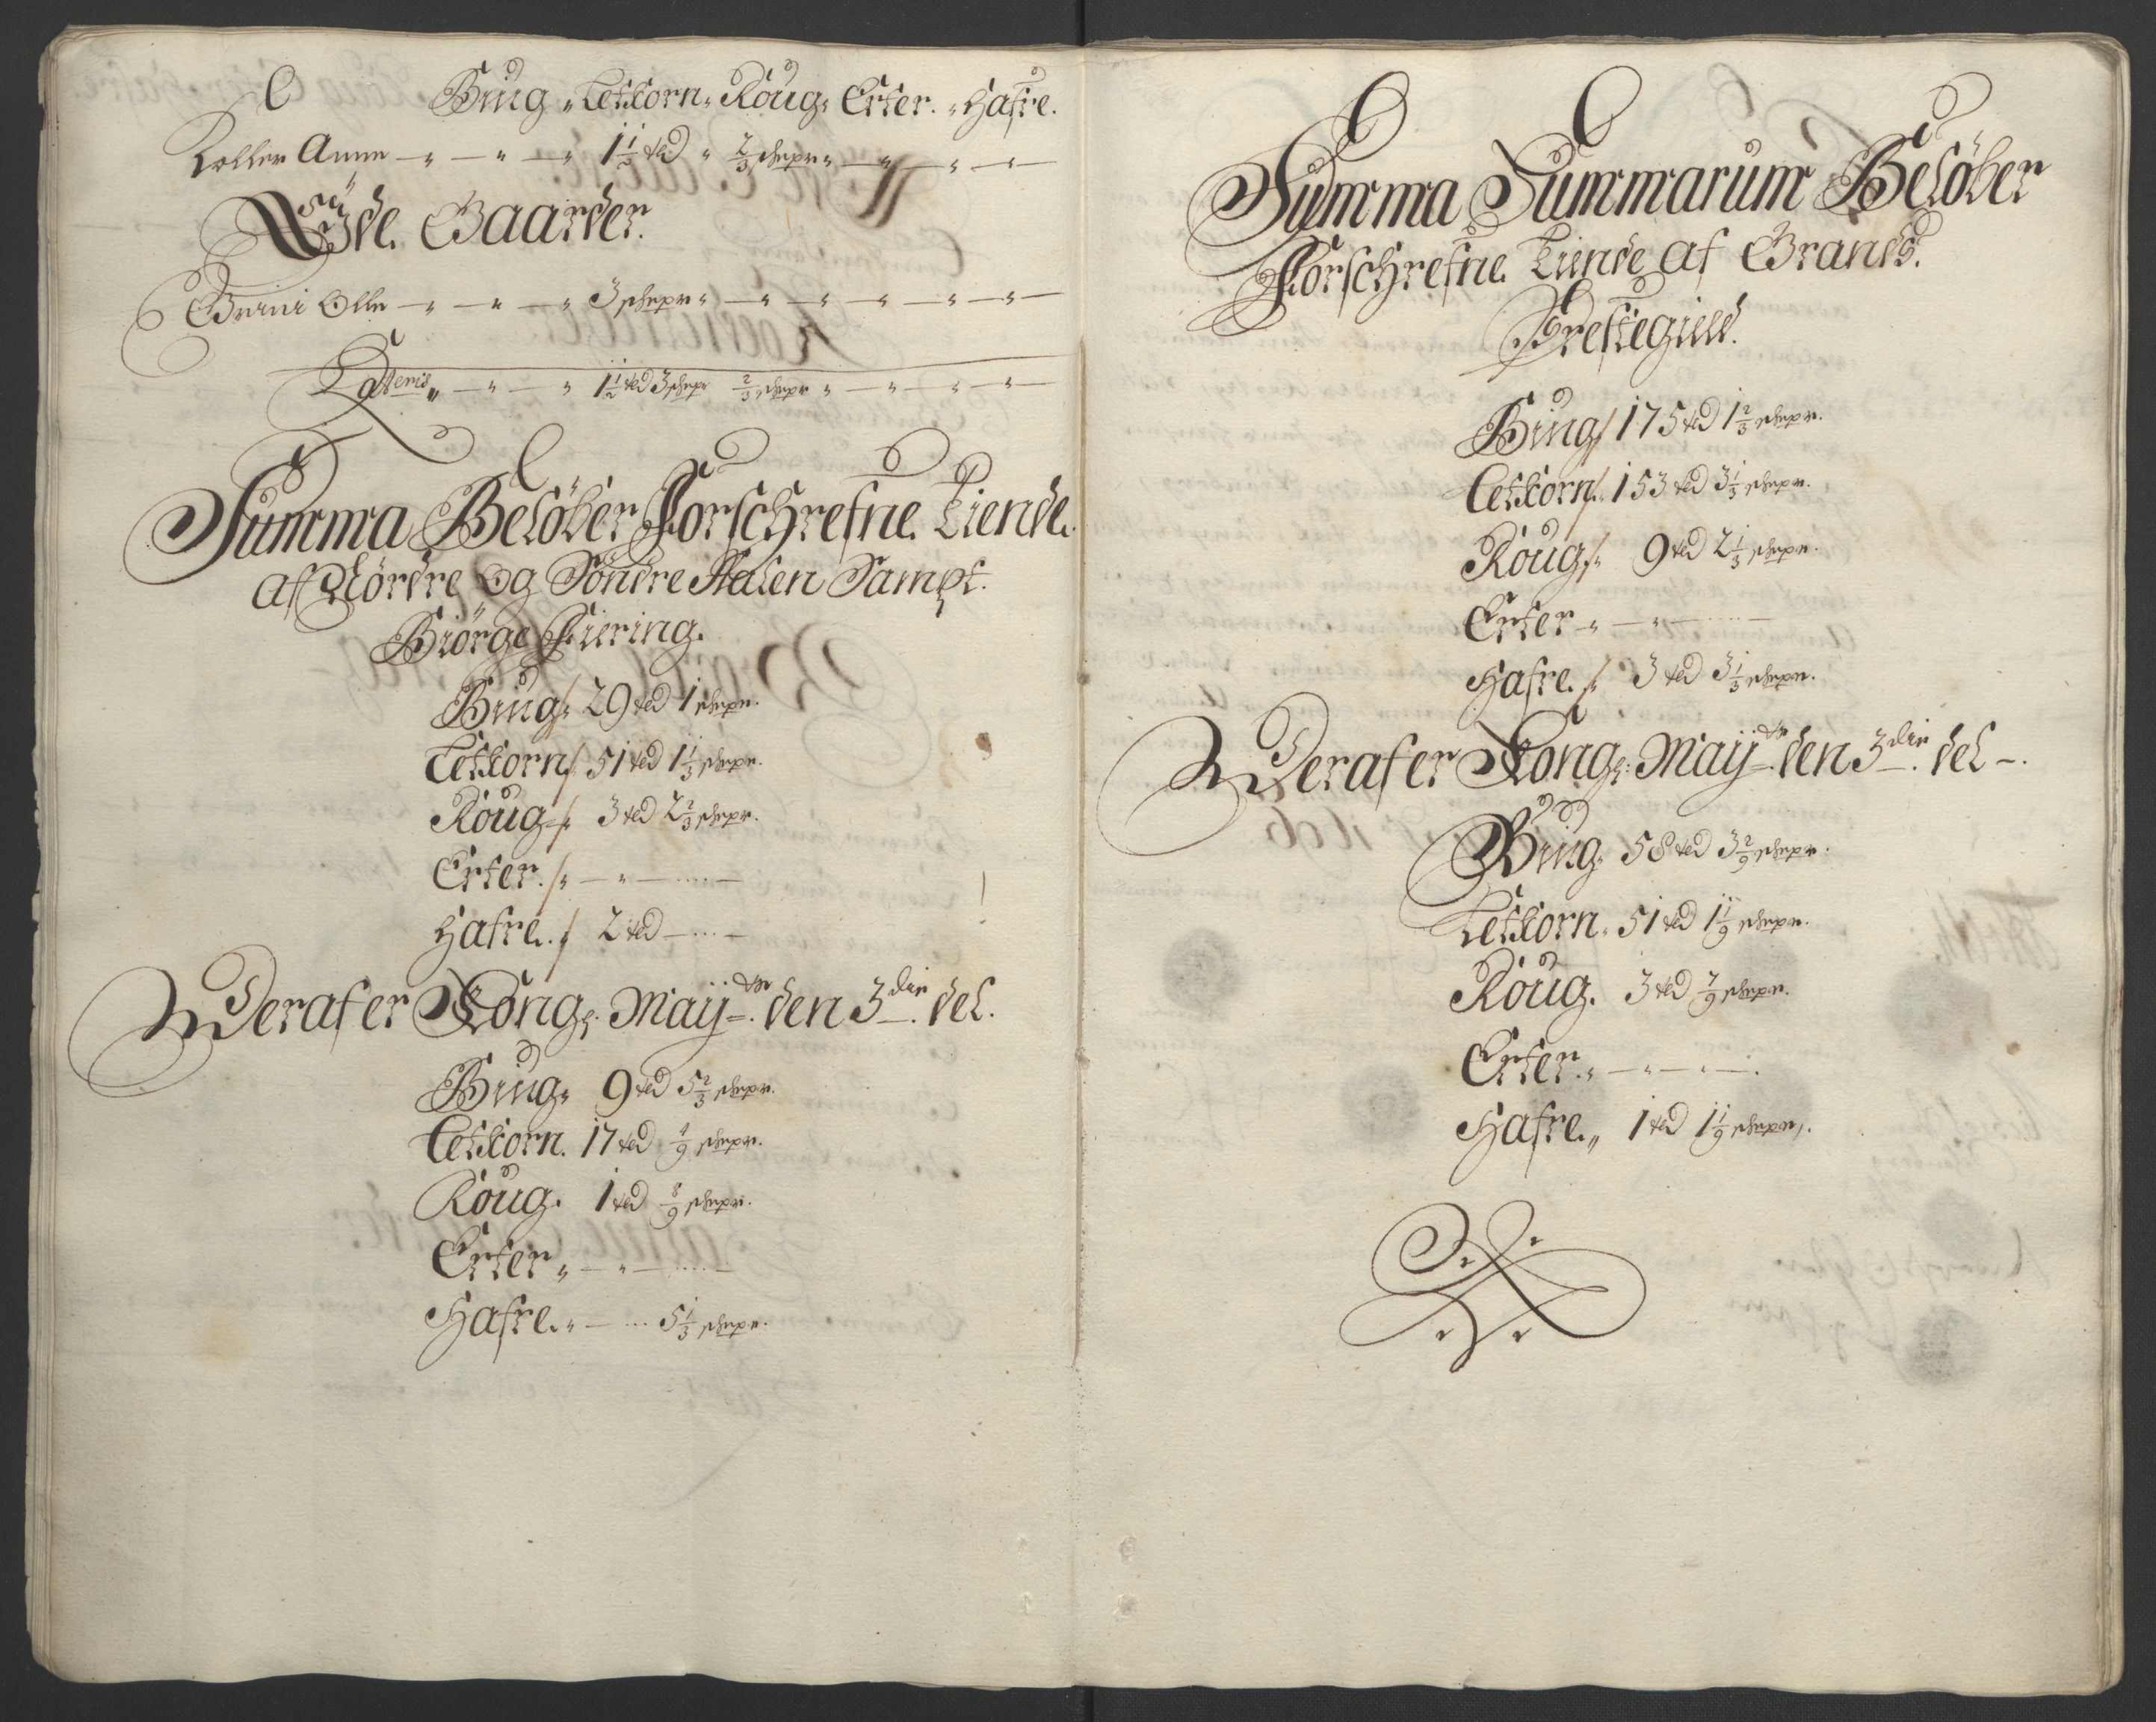 Biug „ Letkorn „ Roug „ Erter. „ Hafre.
Koller Anne — „ — „ — „ 1 1/3 td „ 2/3 schepr „ — „ — „ —
Øde Gaarder.
Grini Olle — „ — „ — „ 3 schepr „ — „ — „ — „ — „ —
Lateris „ — „ — „ 1 1/2 td 3 schepr 2/3 schepr „ — „ — „ —
Summa Belöber Forschrefne Tiende
af Nordre og Söndre Aalen Sampt.
Biörge Fiering.
Biug „ 29 td 1 schepr.
Letkorn „ 51 td 1 1/3 schepr.
Roug „ 3 td 2 2/3 schepr.
Erter. „ — „ —
Hafre. „ 2 td —
Deraf er Kong: Maij tz den 3 die del.
Biug „ 9 td 5 2/3 schepr.
Letkorn. 17 td 4/9 schepr.
Roug. 1 td 8/9 schepr.
Erter „ — „ —
Hafre. „ — 5 1/3 schepr.
Summa Summarum Belöber
Forschrefne Tiende af Grands.
Prestegield.
Biug 175 td 1 2/3 schepr.
Letkorn 153 td 3 1/3 schepr.
Roug „ 9 td 2 1/3 schepr.
Erter „ — „ —
Hafre. „ 3 td 3 1/3 schepr.
Deraf er Kong: Maij tz den 3 die del —.
Biug 58 td 3 2/9 schepr.
Letkorn. 51 td 1 1/9 schepr.
Roug. 3 td 7/9 schepr.
Erter. „ — „ —
Hafre. „ 1 td 1 1/9 schepr.